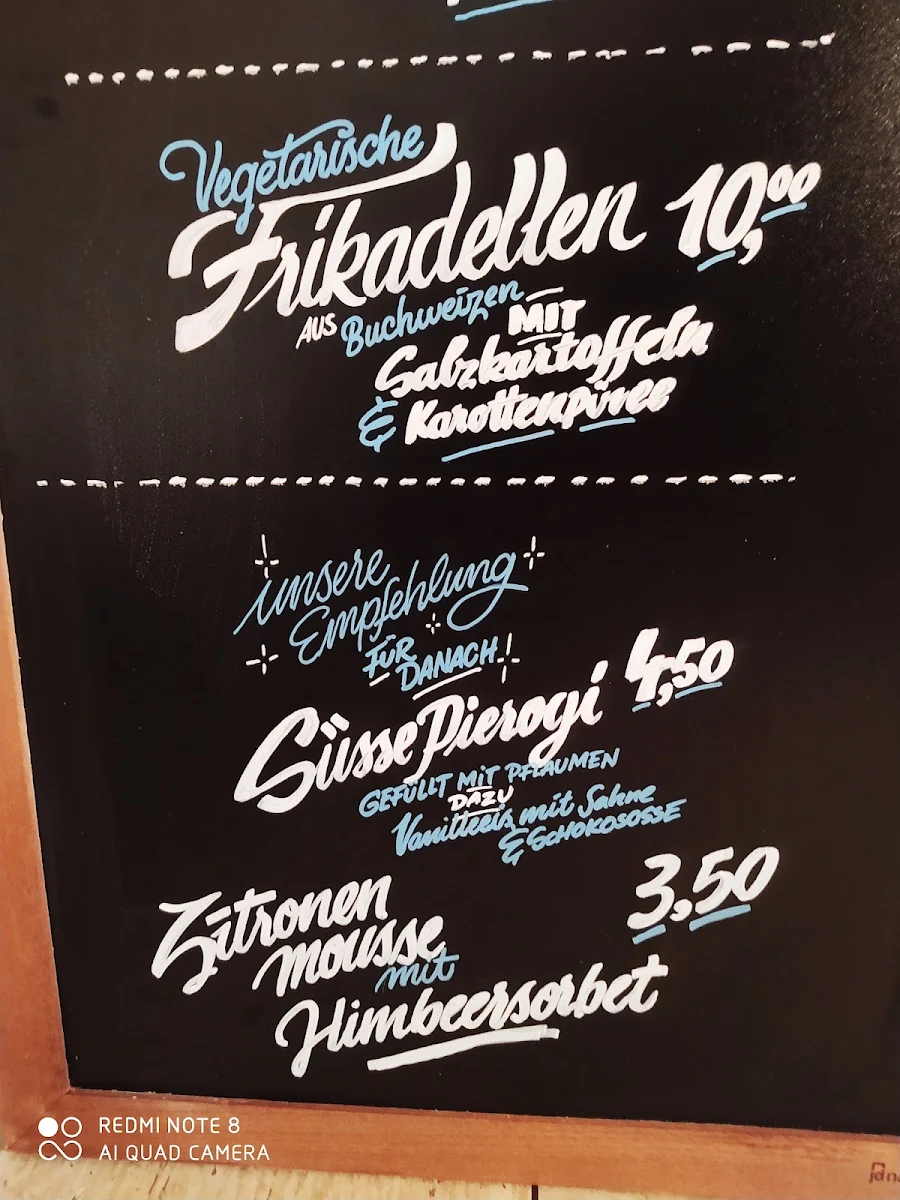 Vegetarische
Frikadellen 10,00
AUS Buchweizen MIT
Salzkartoffeln
& Karottenpüree
unsere
Empfehlung
FÜR
DANACH!
Süsse Pierogi 4,50
GEFÜLLT MIT PFLAUMEN
DAZU
Vanilleeis mit Sahne
& SCHOKOSOSSE
Zitronen
mousse 3,50
mit
Himbeersorbet
REDMI NOTE 8
AI QUAD CAMERA